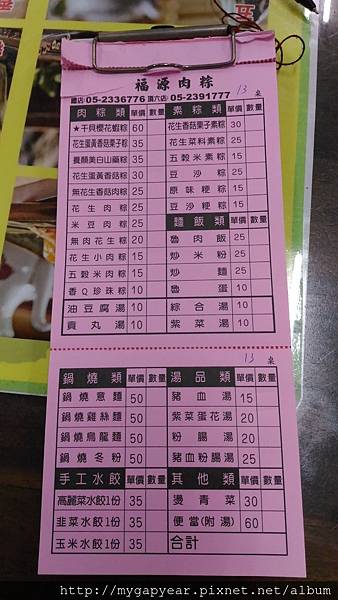 福源肉粽
總店05-2336776 頂六店:05-2391777
13 桌
肉粽類 單價 數量 素粽類 單價 數量
★干貝櫻花蝦粽 60 花生香菇栗子素粽 30
花生蛋黃香菇栗子粽 35 花生菜料素粽 25
養顏美白山藥粽 35 五穀米素粽 15
花生蛋黃香菇粽 30 豆沙粽 15
無花生香菇肉粽 25 原味粳粽 15
花生肉粽 25 豆沙粳粽 15
米豆肉粽 25 麵飯類 單價 數量
無肉花生粽 20 魯肉飯 25
花生小肉粽 15 炒米粉 25
五穀米肉粽 15 炒麵 25
香Q珍珠粽 10 魯蛋 10
油豆腐湯 10 綜合湯 10
貢丸湯 10 紫菜湯 10
13 桌
鍋燒類 單價 數量 湯品類 單價 數量
鍋燒意麵 50 豬血湯 15
鍋燒雞絲麵 50 紫菜蛋花湯 20
鍋燒烏龍麵 50 粉腸湯 20
鍋燒冬粉 50 豬血粉腸湯 25
手工水餃 單價 數量 其他類 單價 數量
高麗菜水餃1份 35 燙青菜 30
韭菜水餃1份 35 便當(附湯) 60
玉米水餃1份 35 合計
http://mygapyear.pixnet.net/album